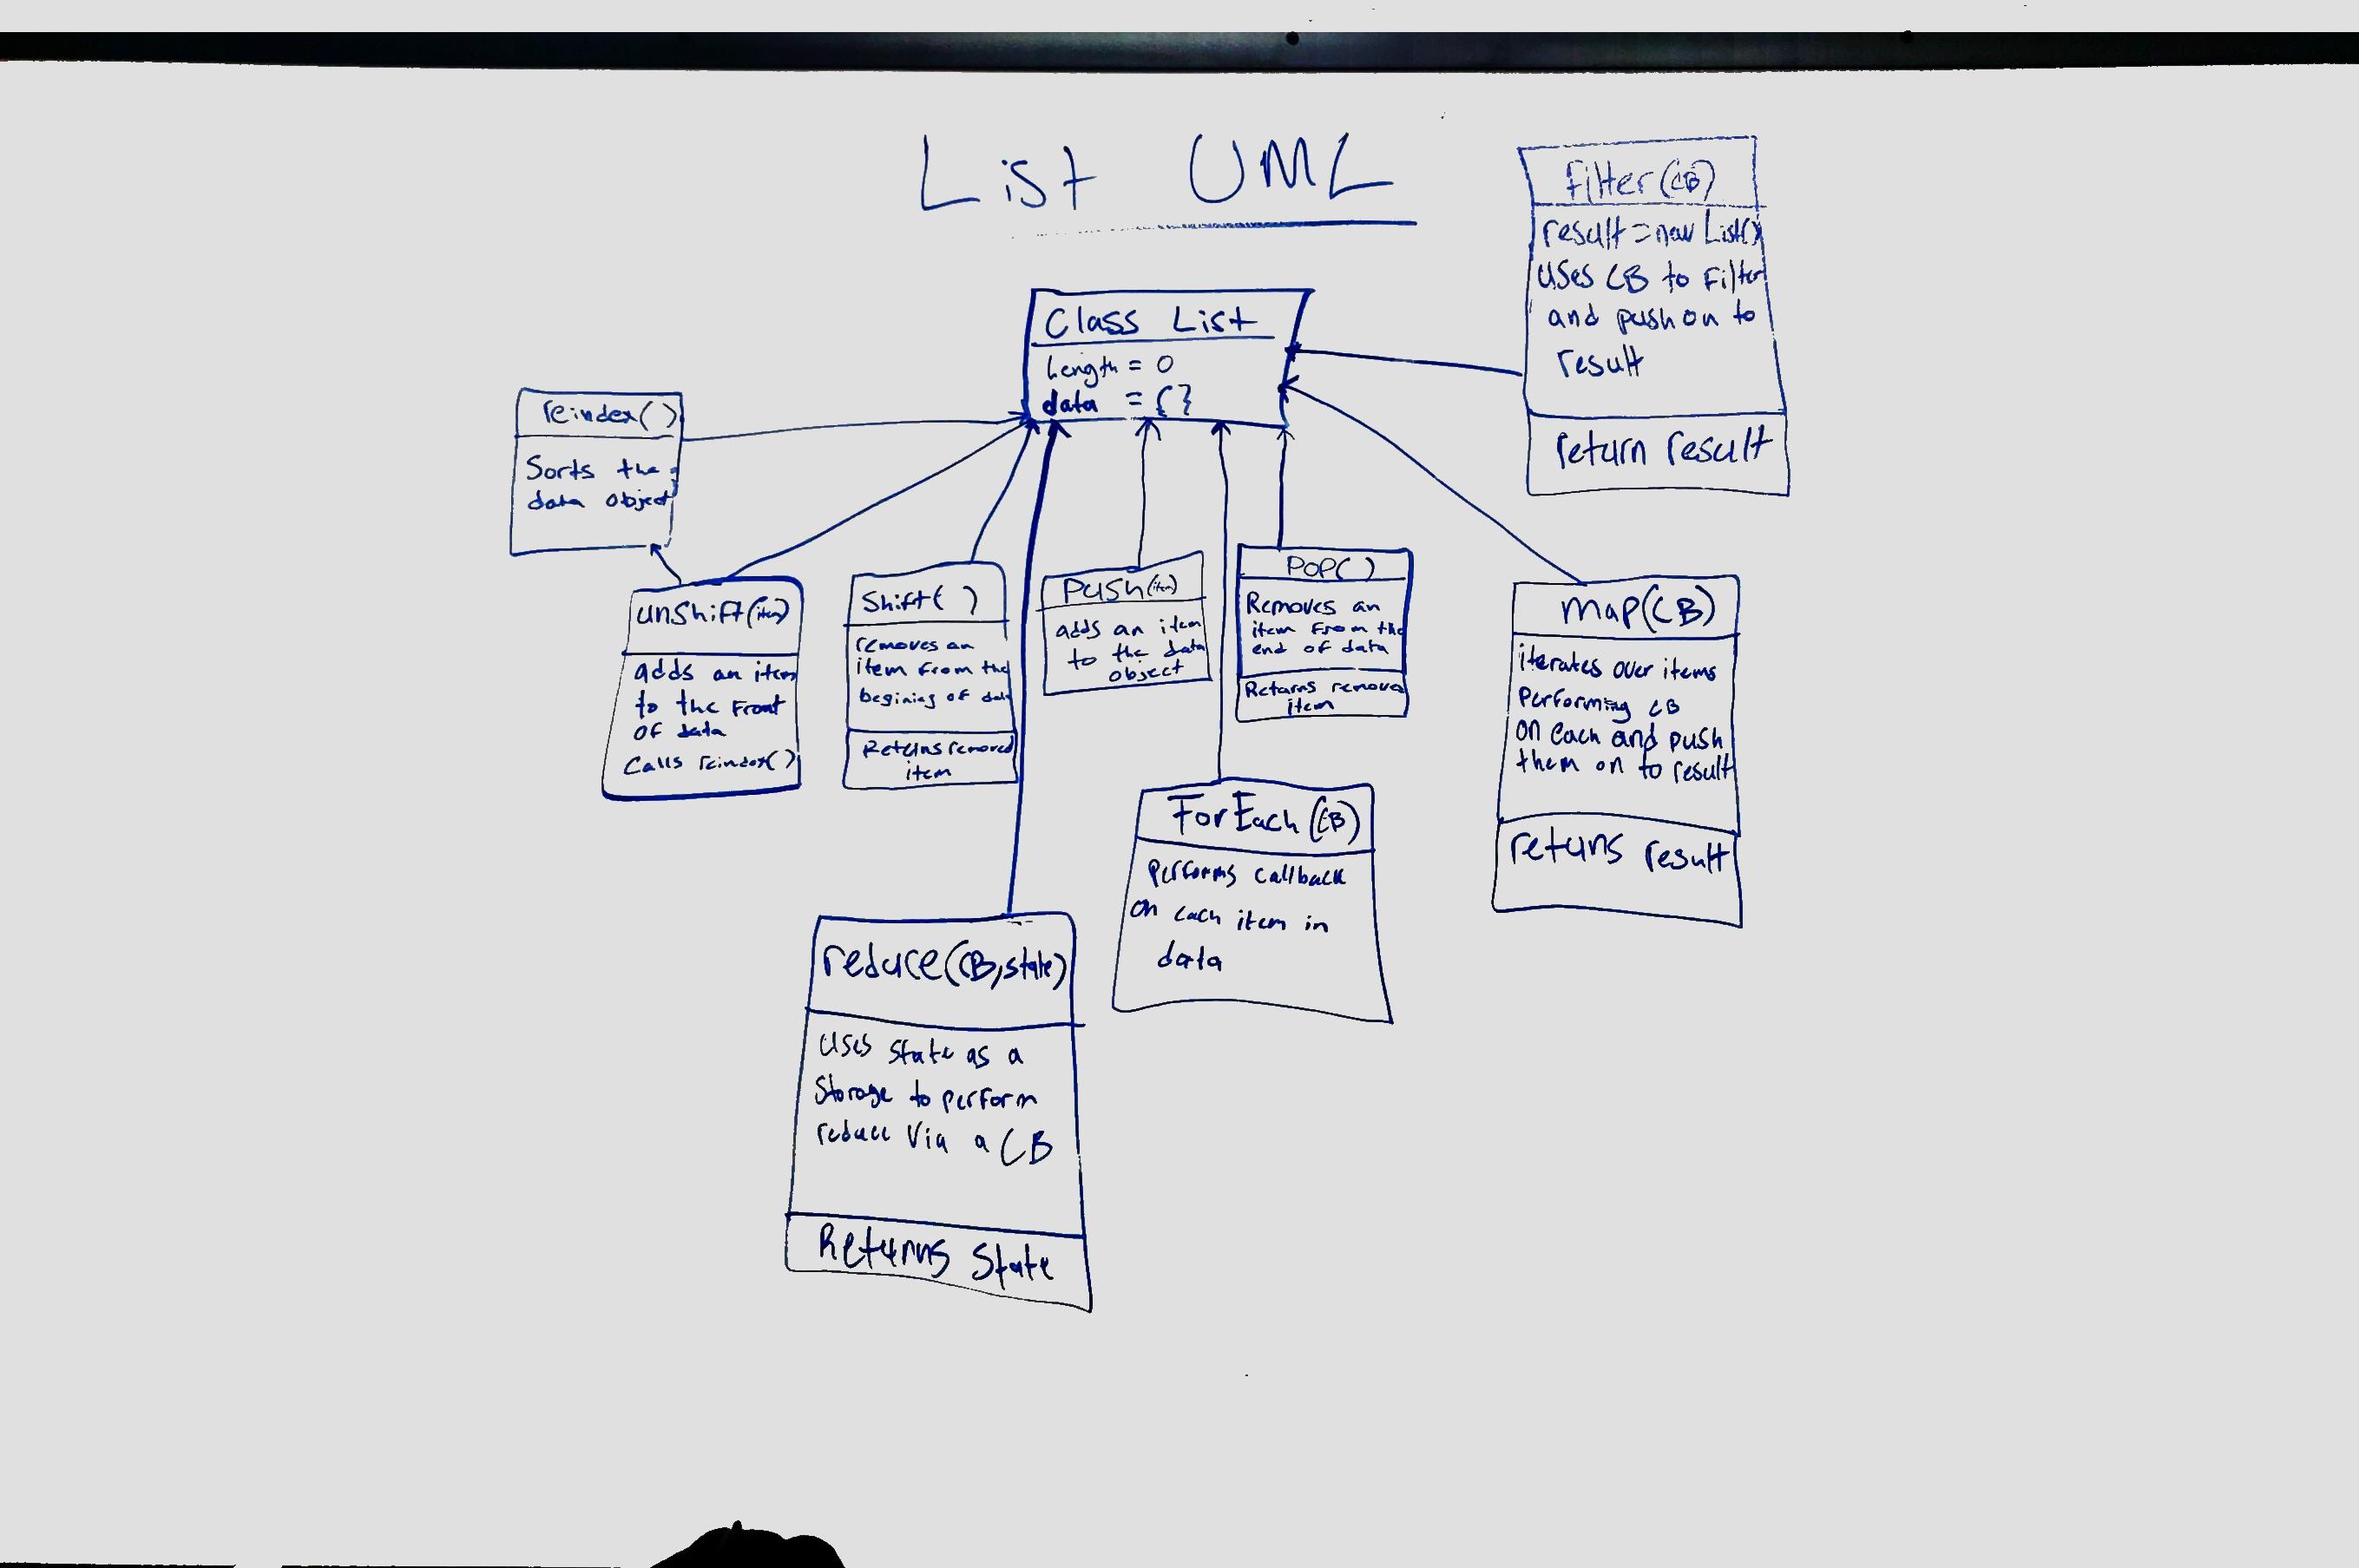 List UML
filter(CB)
result = new List()
uses CB to Filter
and push on to
result
return result
Class List
Length = 0
data = {}
reindex()
Sorts the
data object
unshift(item)
adds an item
to the Front
of data
Calls reindex()
Shift( )
removes an
item from the
begining of data
Returns removed
item
Push(item)
adds an item
to the data
object
POP()
Removes an
item From the
end of data
Returns removed
item
map(CB)
iterates over items
Performing CB
on each and push
them on to result
returns result
ForEach(CB)
Performs callback
on each item in
data
reduce(CB, state)
Uses state as a
Storage to perform
reduce Via a CB
Returns State